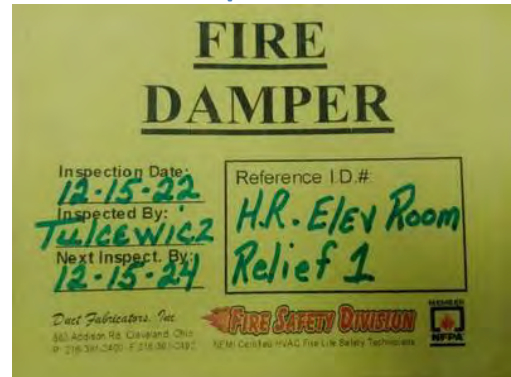 FIRE
DAMPER
Inspection Date:
12-15-22
Inspected By:
Tulcewicz
Next Inspect. By:
12-15-24
Reference I.D.#:
H.R. Elev Room
Relief 1
Duct Fabricators, Inc.
Addison Rd. Cleveland, Ohio
FIRE SAFETY DIVISION
NEMI Certified HVAC Fire Life Safety Technicians
MEMBER
NFPA